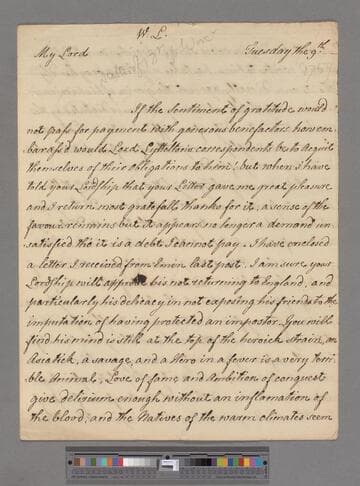 W L.
My Lord Tuesday the 9th
If the Sentiment of gratitude would
not pass for payment with generous benefactors how em
barass'd would Lord Lytteltons correspondents be to acquit
themselves of their obligations to him! but when I have
told your Lordship that your Letter gave me great pleasure
and I return most gratefull thanks for it, a sense of the
favour remains but it appears no longer a demand un
satisfied tho it is a debt I cannot pay. I have enclosed
a letter I received from Emin last post. I am sure your
Lordship will approve his not returning to England, and
particularly his delicacy in not exposing his friends to the
imputation of having protected an impostor. You will
find his mind is still at the top of the heroick strain, an
Asiatick, a savage, and a Hero in a fever is a very terri
ble Animal, Love of fame and Ambition of conquest
give delirium enough without an inflamation of
the blood, and the Natives of the warm climates seem